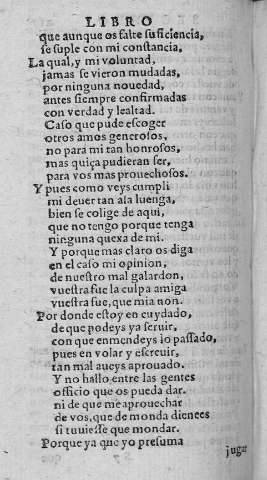 LIBRO
que aunque os falte suficiencia,
se suple con mi constancia,
La qual, y mi voluntad,
jamas se vieron mudadas,
por ninguna nouedad,
antes siempre confirmadas
con verdad y lealtad.
Caso que pude escoger
otros amos generosos,
no para mi tan honrosos,
mas quiça pudieran ser,
para vos mas prouechosos.
Y pues como veys cumpli
mi deuer tan a la luenga,
bien se colige de aqui,
que no tengo porque tenga
ninguna quexa de mi.
Y porque mas claro os diga
en el caso mi opinion,
de nuestro mal galardon,
vuestra fue la culpa amiga
vuestra fue, que mia non.
Por donde estoy en cuydado,
de que podeys ya seruir,
con que enmendeys lo passado,
pues en volar y escreuir,
tan mal aueys aprouado.
Y no hallo entre las gentes
officio que os pueda dar.
ni de que me aprouechar
de vos, que de monda dientes
si tuuiesse que mondar.
Porque ya que yo presuma
jugar